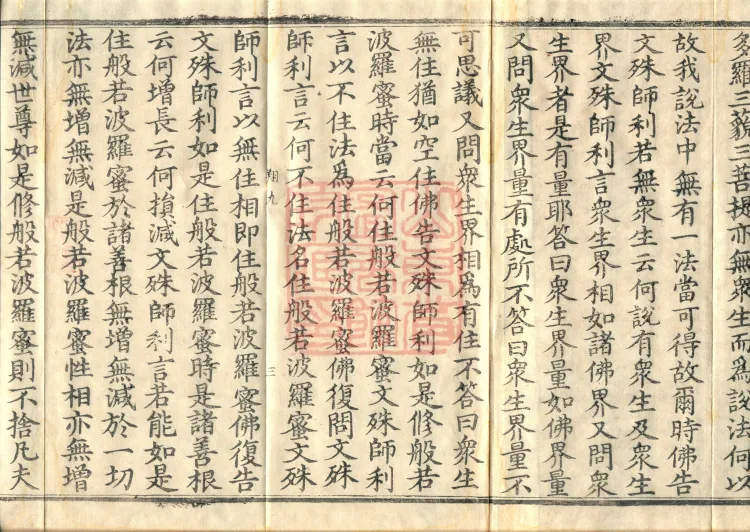 多羅三藐三菩提亦無衆生而為說法何以
故我說法中無有一法當可得故爾時佛告
文殊師利若無衆生云何說有衆生及衆生
界文殊師利言衆生界相如諸佛界又問衆
生界者是有量耶答曰衆生界量如佛界量
又問衆生界量有處所不答曰衆生界量不
可思議又問衆生界相為有住不答曰衆生
無住猶如空住佛告文殊師利如是修般若
波羅蜜時當云何住般若波羅蜜文殊師利
言以不住法為住般若波羅蜜佛復問文殊
師利言云何不住法名住般若波羅蜜文殊
翔九 三
師利言以無住相即住般若波羅蜜佛復告
文殊師利如是住般若波羅蜜時是諸善根
云何增長云何損減文殊師利言若能如是
住般若波羅蜜於諸善根無增無減於一切
法亦無增無減是般若波羅蜜性相亦無增
無減世尊如是修般若波羅蜜則不捨凡夫